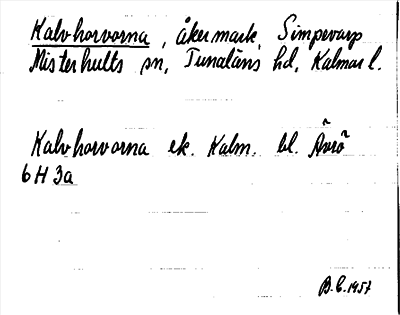 Kalvhorvorna, åkermark, Simpevarp
Misterhults sn, Tunaläns hd, Kalmar l.
Kalvhorvorna ek. Kalm. bl. Ävrö
6H 3a
B.E. 1957